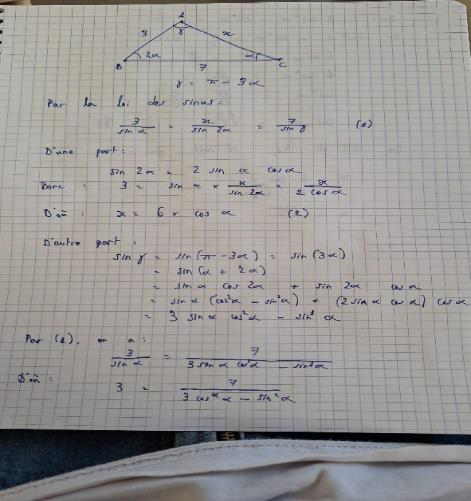 A
3 γ x
B 2α 7 α C
γ = π - 3α
Par la loi des sinus:
3/sin α = x/sin 2α = 7/sin γ (1)
D'une part:
sin 2α = 2 sin α cos α
Donc: 3 = sin α × x/sin 2α = x/2 cos α
D'où: x = 6 × cos α (2)
D'autre part:
sin γ = sin(π - 3α) = sin(3α)
= sin(α + 2α)
= sin α cos 2α + sin 2α cos α
= sin α (cos²α - sin²α) + (2 sin α cos α) cos α
= 3 sin α cos²α - sin³ α
Par (1), on a:
3/sin α = 7/3 sin α cos²α - sin³α
D'où: 3 = 7/3 cos²α - sin²α